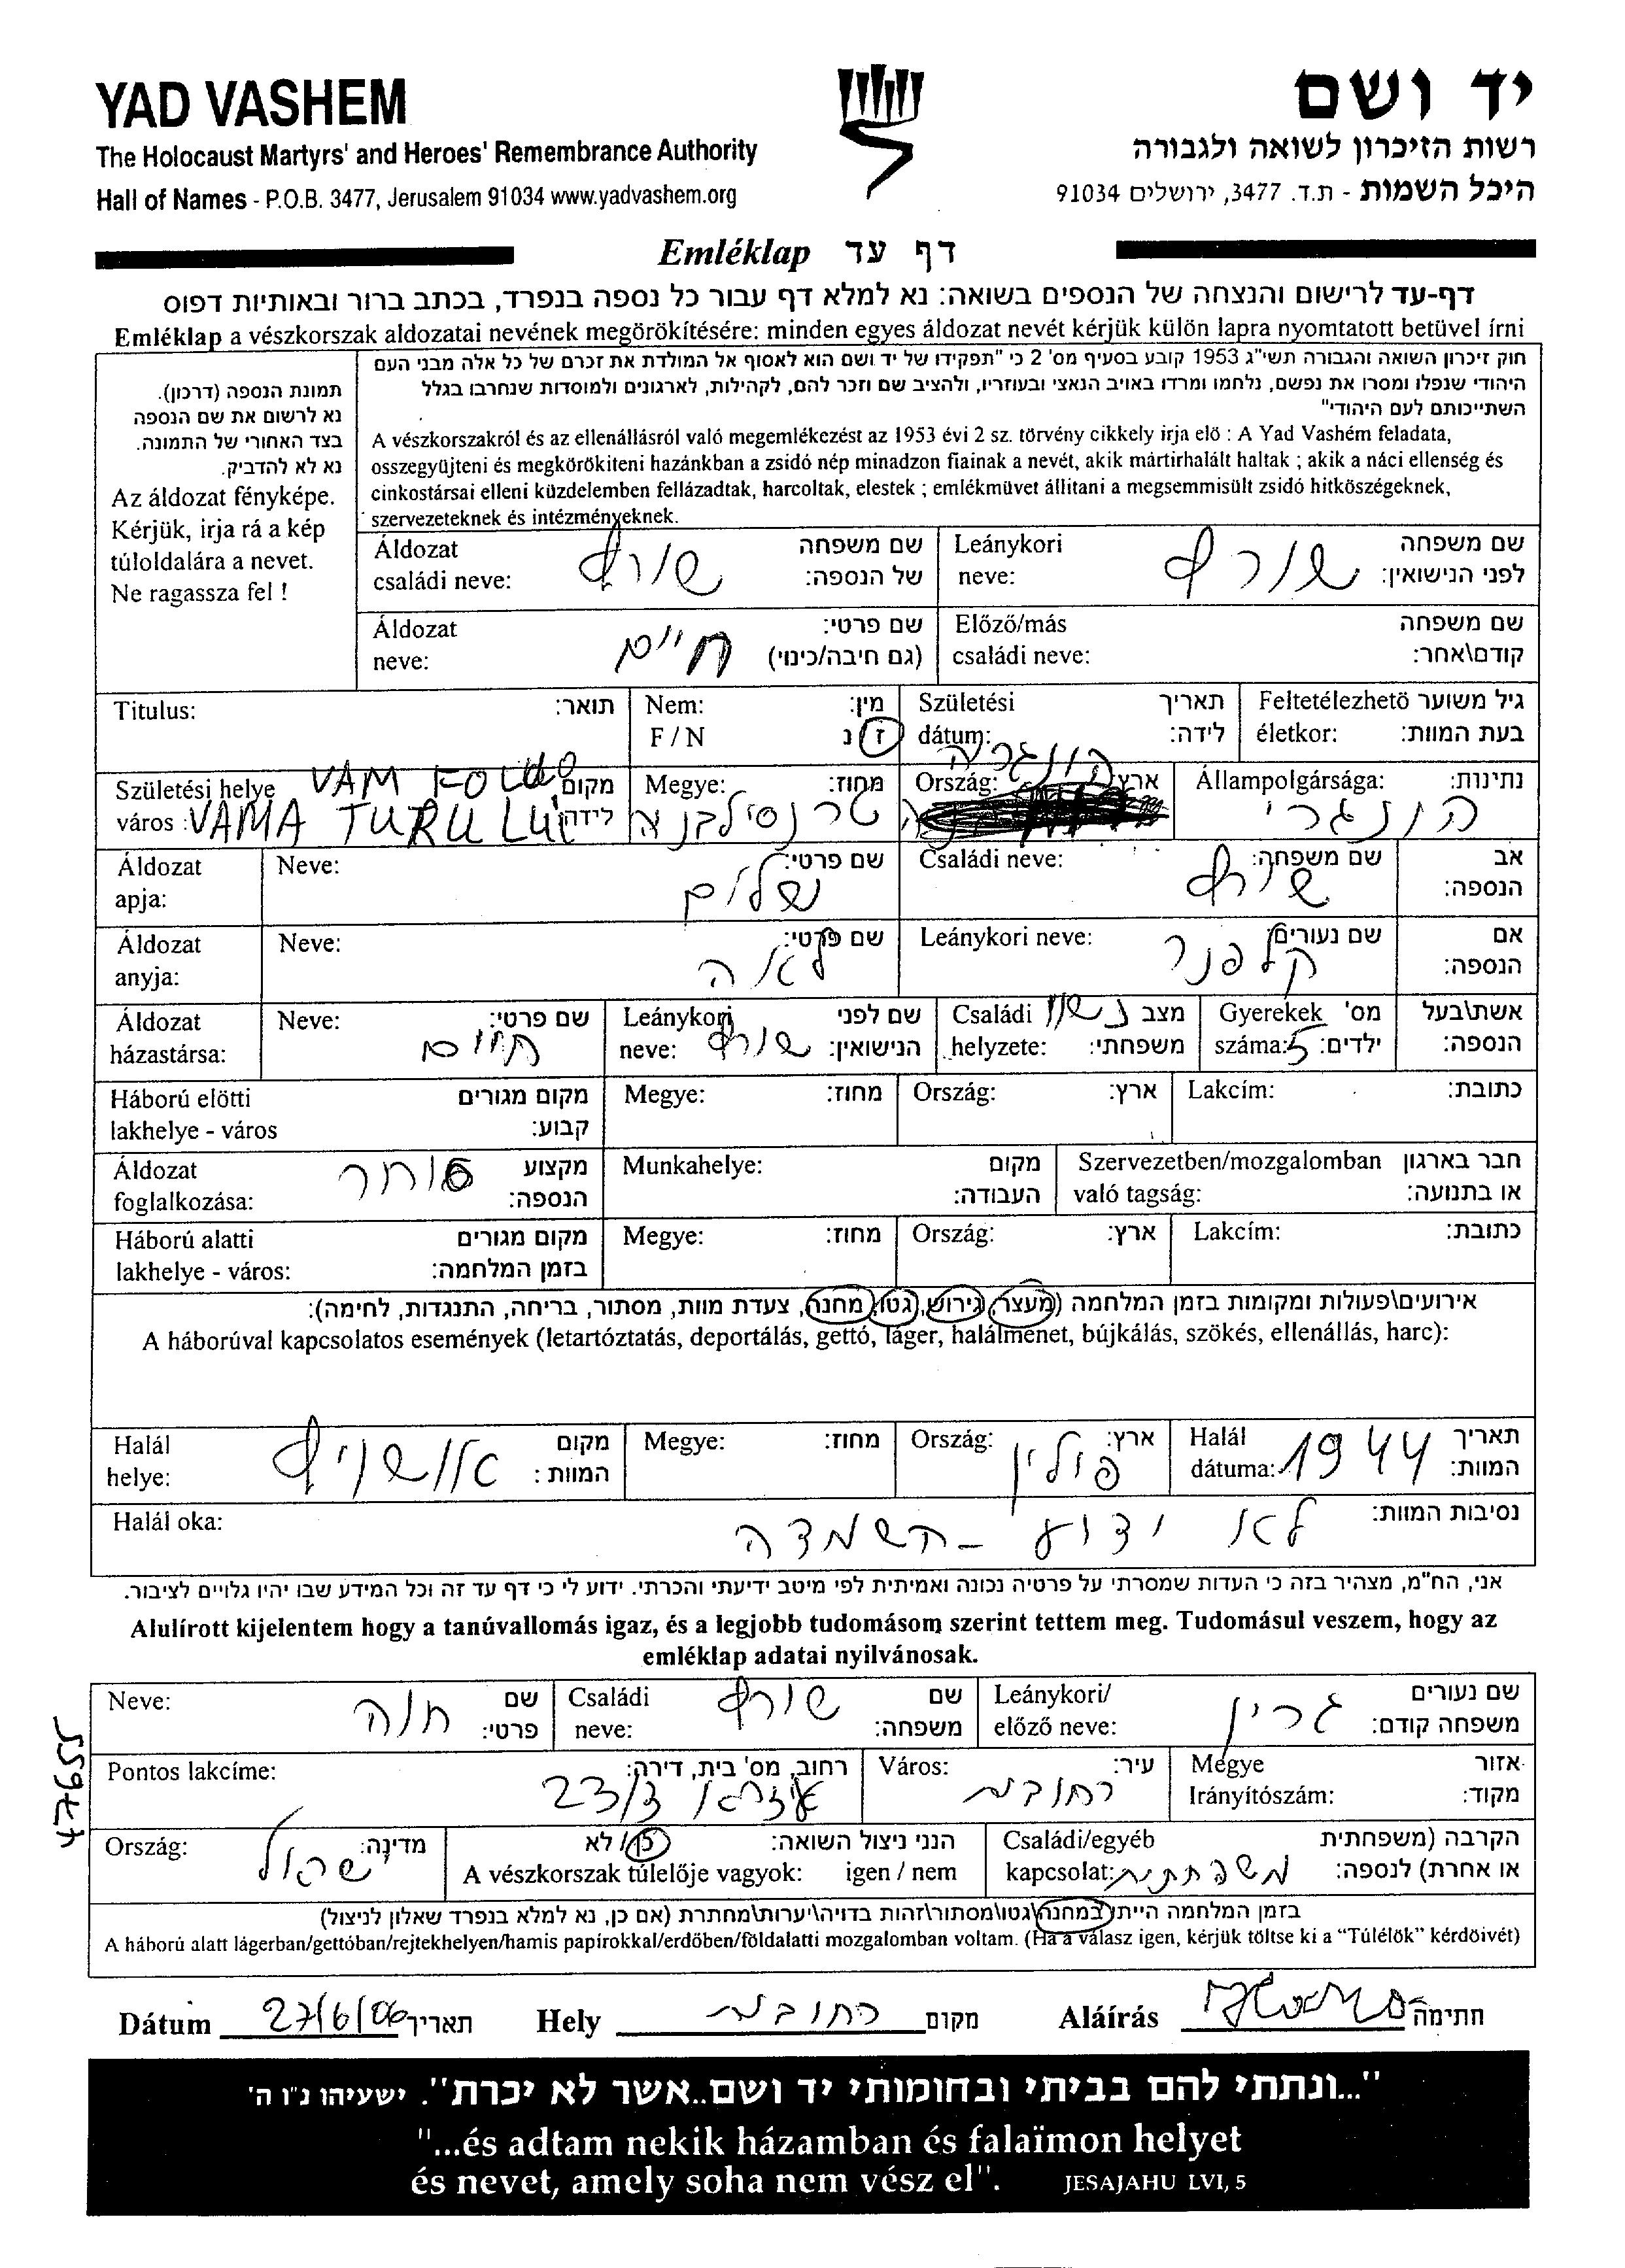 YAD VASHEM
The Holocaust Martyrs' and Heroes' Remembrance Authority
Hall of Names - P.O.B. 3477, Jerusalem 91034 www.yadvashem.org
יד ושם
רשות הזיכרון לשואה ולגבורה
היכל השמות - ת.ד. 3477, ירושלים 91034
Emléklap דף עד
דף-עד לרישום והנצחה של הנספים בשואה: נא למלא דף עבור כל נספה בנפרד, בכתב ברור ובאותיות דפוס
Emléklap a vészkorszak aldozatai nevének megörökítésére: minden egyes áldozat nevét kérjük külön lapra nyomtatott betüvel írni
תמונת הנספה (דרכון).
נא לרשום את שם הנספה
בצד האחורי של התמונה.
נא לא להדביק.
Az áldozat fényképe.
Kérjük, irja rá a kép
túloldalára a nevet.
Ne ragassza fel !
חוק זיכרון השואה והגבורה תשי"ג 1953 קובע בסעיף מס' 2 כי "תפקידו של יד ושם הוא לאסוף אל המולדת את זכרם של כל אלה מבני העם
היהודי שנפלו ומסרו את נפשם, נלחמו ומרדו באויב הנאצי ובעוזריו, ולהציב שם וזכר להם, לקהילות, לארגונים ולמוסדות שנחרבו בגלל
השתייכותם לעם היהודי"
A vészkorszakról és az ellenállásról való megemlékezést az 1953 évi 2 sz. törvény cikkely irja elö : A Yad Vashém feladata,
osszegyüjteni és megkörökiteni hazánkban a zsidó nép minadzon fiainak a nevét, akik mártirhalált haltak ; akik a náci ellenség és
cinkostársai elleni küzdelemben fellázadtak, harcoltak, elestek ; emlékmüvet állitani a megsemmisült zsidó hitköszégeknek,
szervezeteknek és intézményeknek.
Áldozat családi neve: שורף שם משפחה של הנספה:
Leánykori neve: שורף שם משפחה לפני הנישואין:
Áldozat neve: חיים שם פרטי: (גם חיבה/כינוי)
Előző/más családi neve: שם משפחה קודם\אחר:
Titulus: תואר:
Nem: F / N מין: ז נ
Születési dátum: תאריך לידה:
Feltetélezhető életkor: גיל משוער בעת המוות:
Születési helye város: VAMFOLDO VAMA TURULUI מקום לידה:
Megye: טרנסילבניה מחוז:
Ország: הונגריה ארץ:
Állampolgársága: הונגרי נתינות:
Áldozat apja: Neve: שלום שם פרטי: Családi neve: שורף שם משפחה: אב הנספה:
Áldozat anyja: Neve: לאה שם פרטי: Leánykori neve: קלפנר שם נעורים: אם הנספה:
Áldozat házastársa: Neve: חיים שם פרטי: Leánykori neve: שורף שם לפני הנישואין:
Családi helyzete: נשוי מצב משפחתי: Gyerekek száma: 5 מס' ילדים: אשת\בעל הנספה:
Háború elötti lakhelye - város מקום מגורים קבוע: Megye: מחוז: Ország: ארץ: Lakcím: כתובת:
Áldozat foglalkozása: סוחר מקצוע הנספה: Munkahelye: מקום העבודה: Szervezetben/mozgalomban való tagság: חבר בארגון או בתנועה:
Háború alatti lakhelye - város: מקום מגורים בזמן המלחמה: Megye: מחוז: Ország: ארץ: Lakcím: כתובת:
אירועים\פעולות ומקומות בזמן המלחמה (מעצר, גירוש, גטו, מחנה, צעדת מוות, מסתור, בריחה, התנגדות, לחימה):
A háborúval kapcsolatos események (letartóztatás, deportálás, gettó, láger, halálmenet, bújkálás, szökés, ellenállás, harc):
Halál helye: אושויץ מקום המוות: Megye: מחוז: Ország: פולין ארץ: Halál dátuma: 1944 תאריך המוות:
Halál oka: לא ידוע - השמדה נסיבות המוות:
אני, החח"מ, מצהיר בזה כי העדות שמסרתי על פרטיה נכונה ואמיתית לפי מיטב ידיעתי והכרתי. ידוע לי כי דף עד זה וכל המידע שבו יהיו גלויים לציבור.
Alulírott kijelentem hogy a tanúvallomás igaz, és a legjobb tudomásom szerint tettem meg. Tudomásul veszem, hogy az
emléklap adatai nyilvánosak.
Neve: חוה שם פרטי: Családi neve: שורף שם משפחה: Leánykori/ előző neve: גרין שם נעורים משפחה קודם:
Pontos lakcíme: 23/3 רחוב, מס' בית, דירה: Város: רחובות עיר: Megye Irányítószám: אזור מקוד:
Ország: ישראל מדינה: A vészkorszak túlelője vagyok: igen / nem הנני ניצול השואה: כן / לא
Családi/egyéb kapcsolat: משפחתית הקרבה (משפחתית או אחרת) לנספה:
בזמן המלחמה הייתי במחנה\גטו\מסתור\זהות בדויה\יערות\מחתרת (אם כן, נא למלא בנפרד שאלון לניצול)
A háború alatt lágerban/gettóban/rejtekhelyen/hamis papírokkal/erdőben/földalatti mozgalomban voltam. (Ha a válasz igen, kérjük töltse ki a “Túlélök” kérdöivét)
47655
Dátum 27/6/06 תאריך Hely רחובות מקום Aláírás חתימה
"...ונתתי להם בביתי ובחומותי יד ושם..אשר לא יכרת". ישעיהו נ"ו ה'
"...és adtam nekik házamban és falaïmon helyet
és nevet, amely soha nem vész el". JESAJAHU LVI, 5